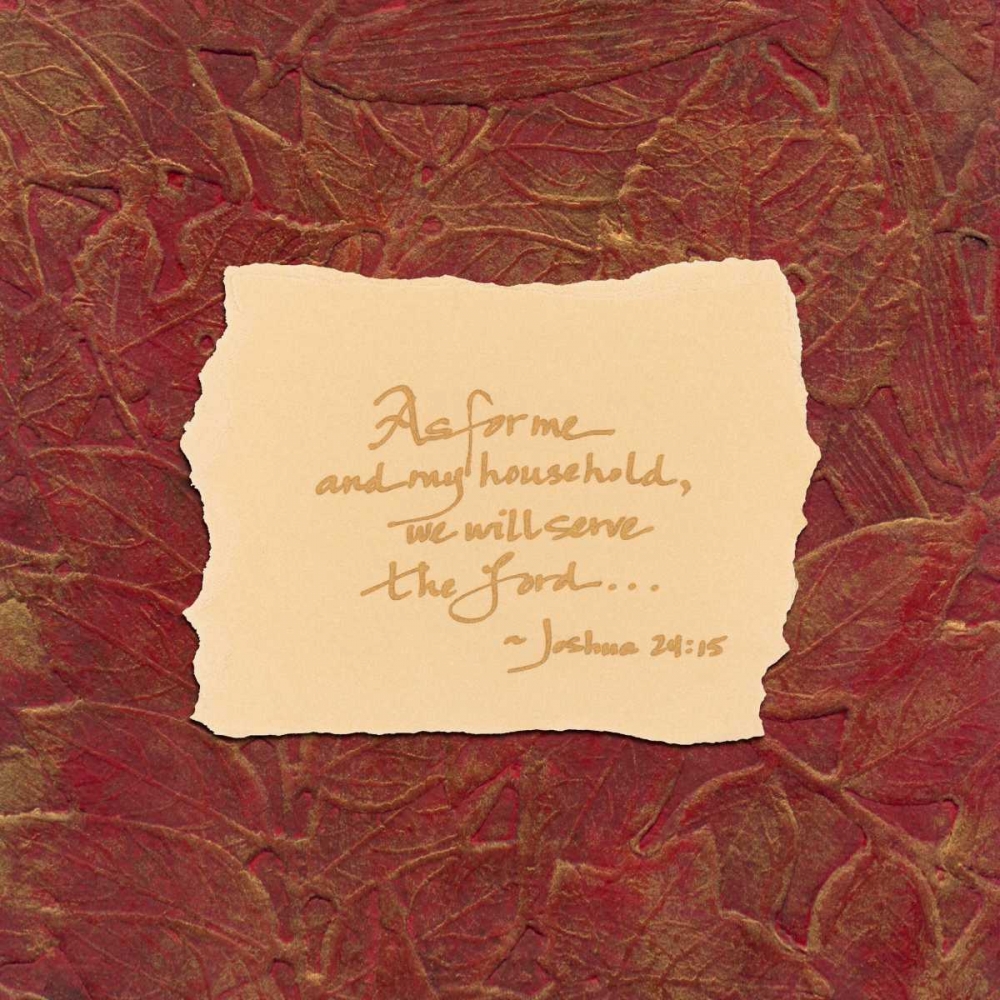 As for me
and my household,
we will serve
the Lord...
~ Joshua 24:15